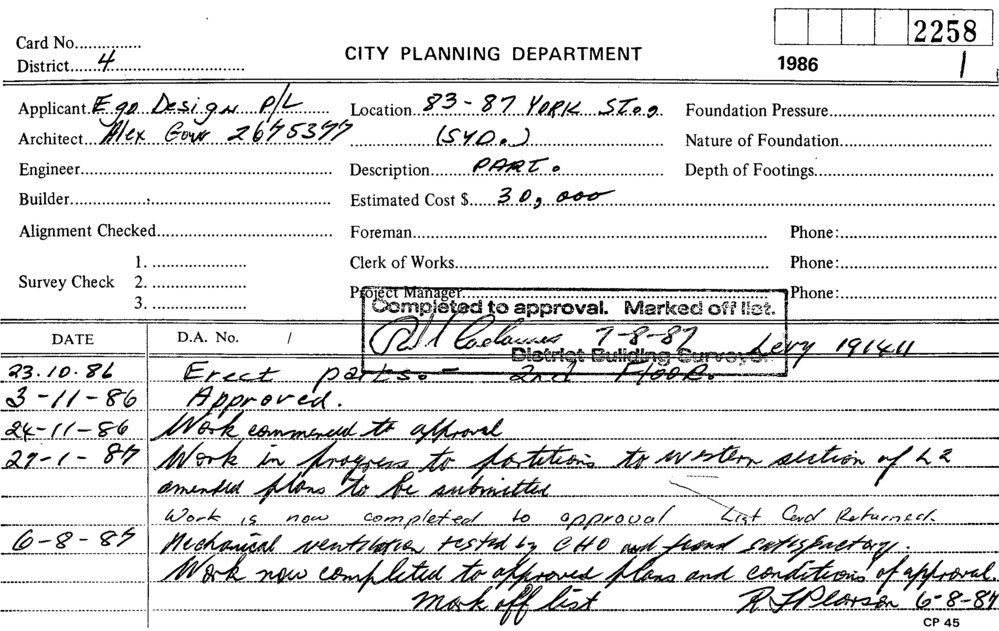 2258
Card No...............
District......4
CITY PLANNING DEPARTMENT
1986 1
Applicant Ego Design P/L Location 83-87 YORK ST., Foundation Pressure
Architect Alex 2675377 (SYD.) Nature of Foundation
Engineer Description PART. Depth of Footings
Builder Estimated Cost $ 30,000
Alignment Checked Foreman Phone:
1. Clerk of Works Phone:
Survey Check 2.
3. Project Manager Phone:
Completed to approval. Marked off list.
DATE D.A. No. / 7-8-87 Levy 191411
District Building Surveyor
23.10.86 Erect parts. - 2nd FLOOR.
3-11-86 Approved.
24-11-86 Work commenced to approval
27-1-87 Work in progress to partitions to western section of L2
amended plans to be submitted
Work is now completed to approval List Card Returned.
6-8-87 Mechanical ventilation tested by CHO and found satisfactory.
Work now completed to approved plans and conditions of approval.
Mark off list R J Pearson 6-8-87
CP 45